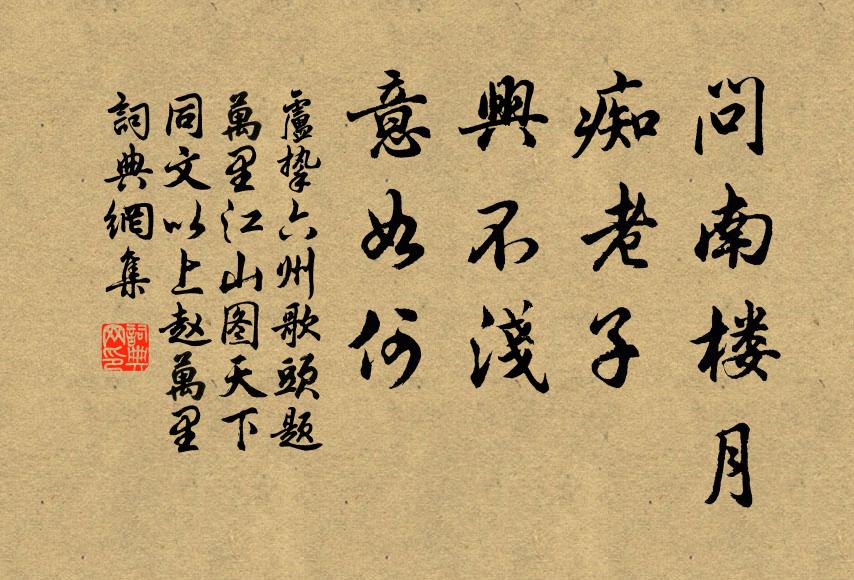 问南楼月
痴老子
興不淺
意如何
盧摯六州歌頭题
萬里江山图天下
同文以上赵萬里
詞典網集
詞典網印